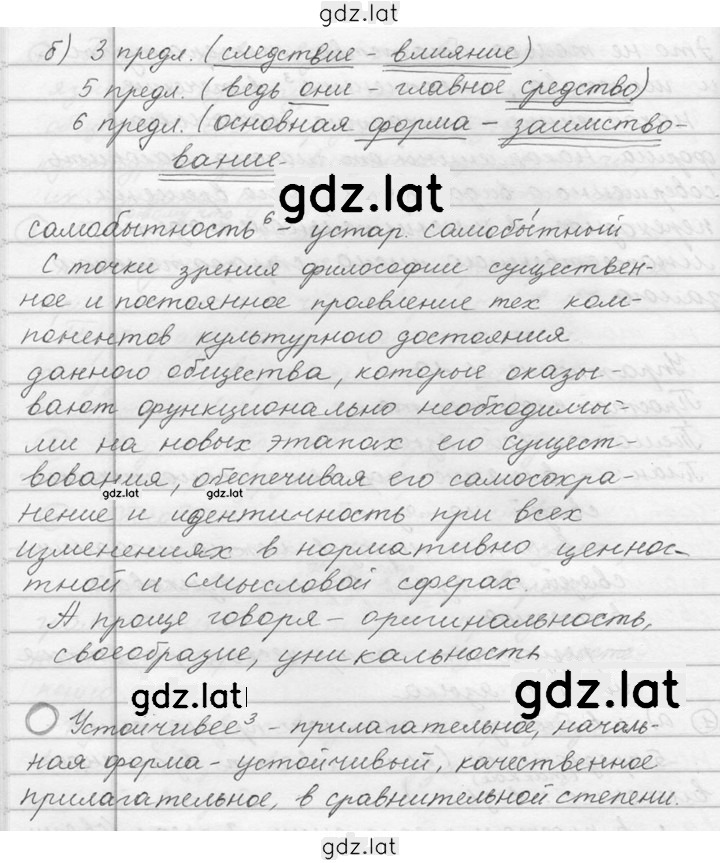 gdz.lat
б) 3 предл. (следствие - влияние)
5 предл. (ведь они - главное средство)
6 предл. (основная форма - заимство-
вание
gdz.lat
самобытность⁶ - устар. самобы́тный
С точки зрения философии существен-
ное и постоянное проявление тех ком-
понентов культурного достояния
данного общества, которые оказы-
вают функционально необходимы-
ми на новых этапах его сущест-
вования, обеспечивая его самосохра-
gdz.lat gdz.lat
нение и идентичность при всех
изменениях в нормативно ценнос-
тной и смысловой сферах.
А проще говоря - оригинальность,
своеобразие, уникальность
gdz.lat gdz.lat
Устойчивее³ - прилагательное, началь-
ная форма - устойчивый, качественное
прилагательное, в сравнительной степени.
gdz.lat